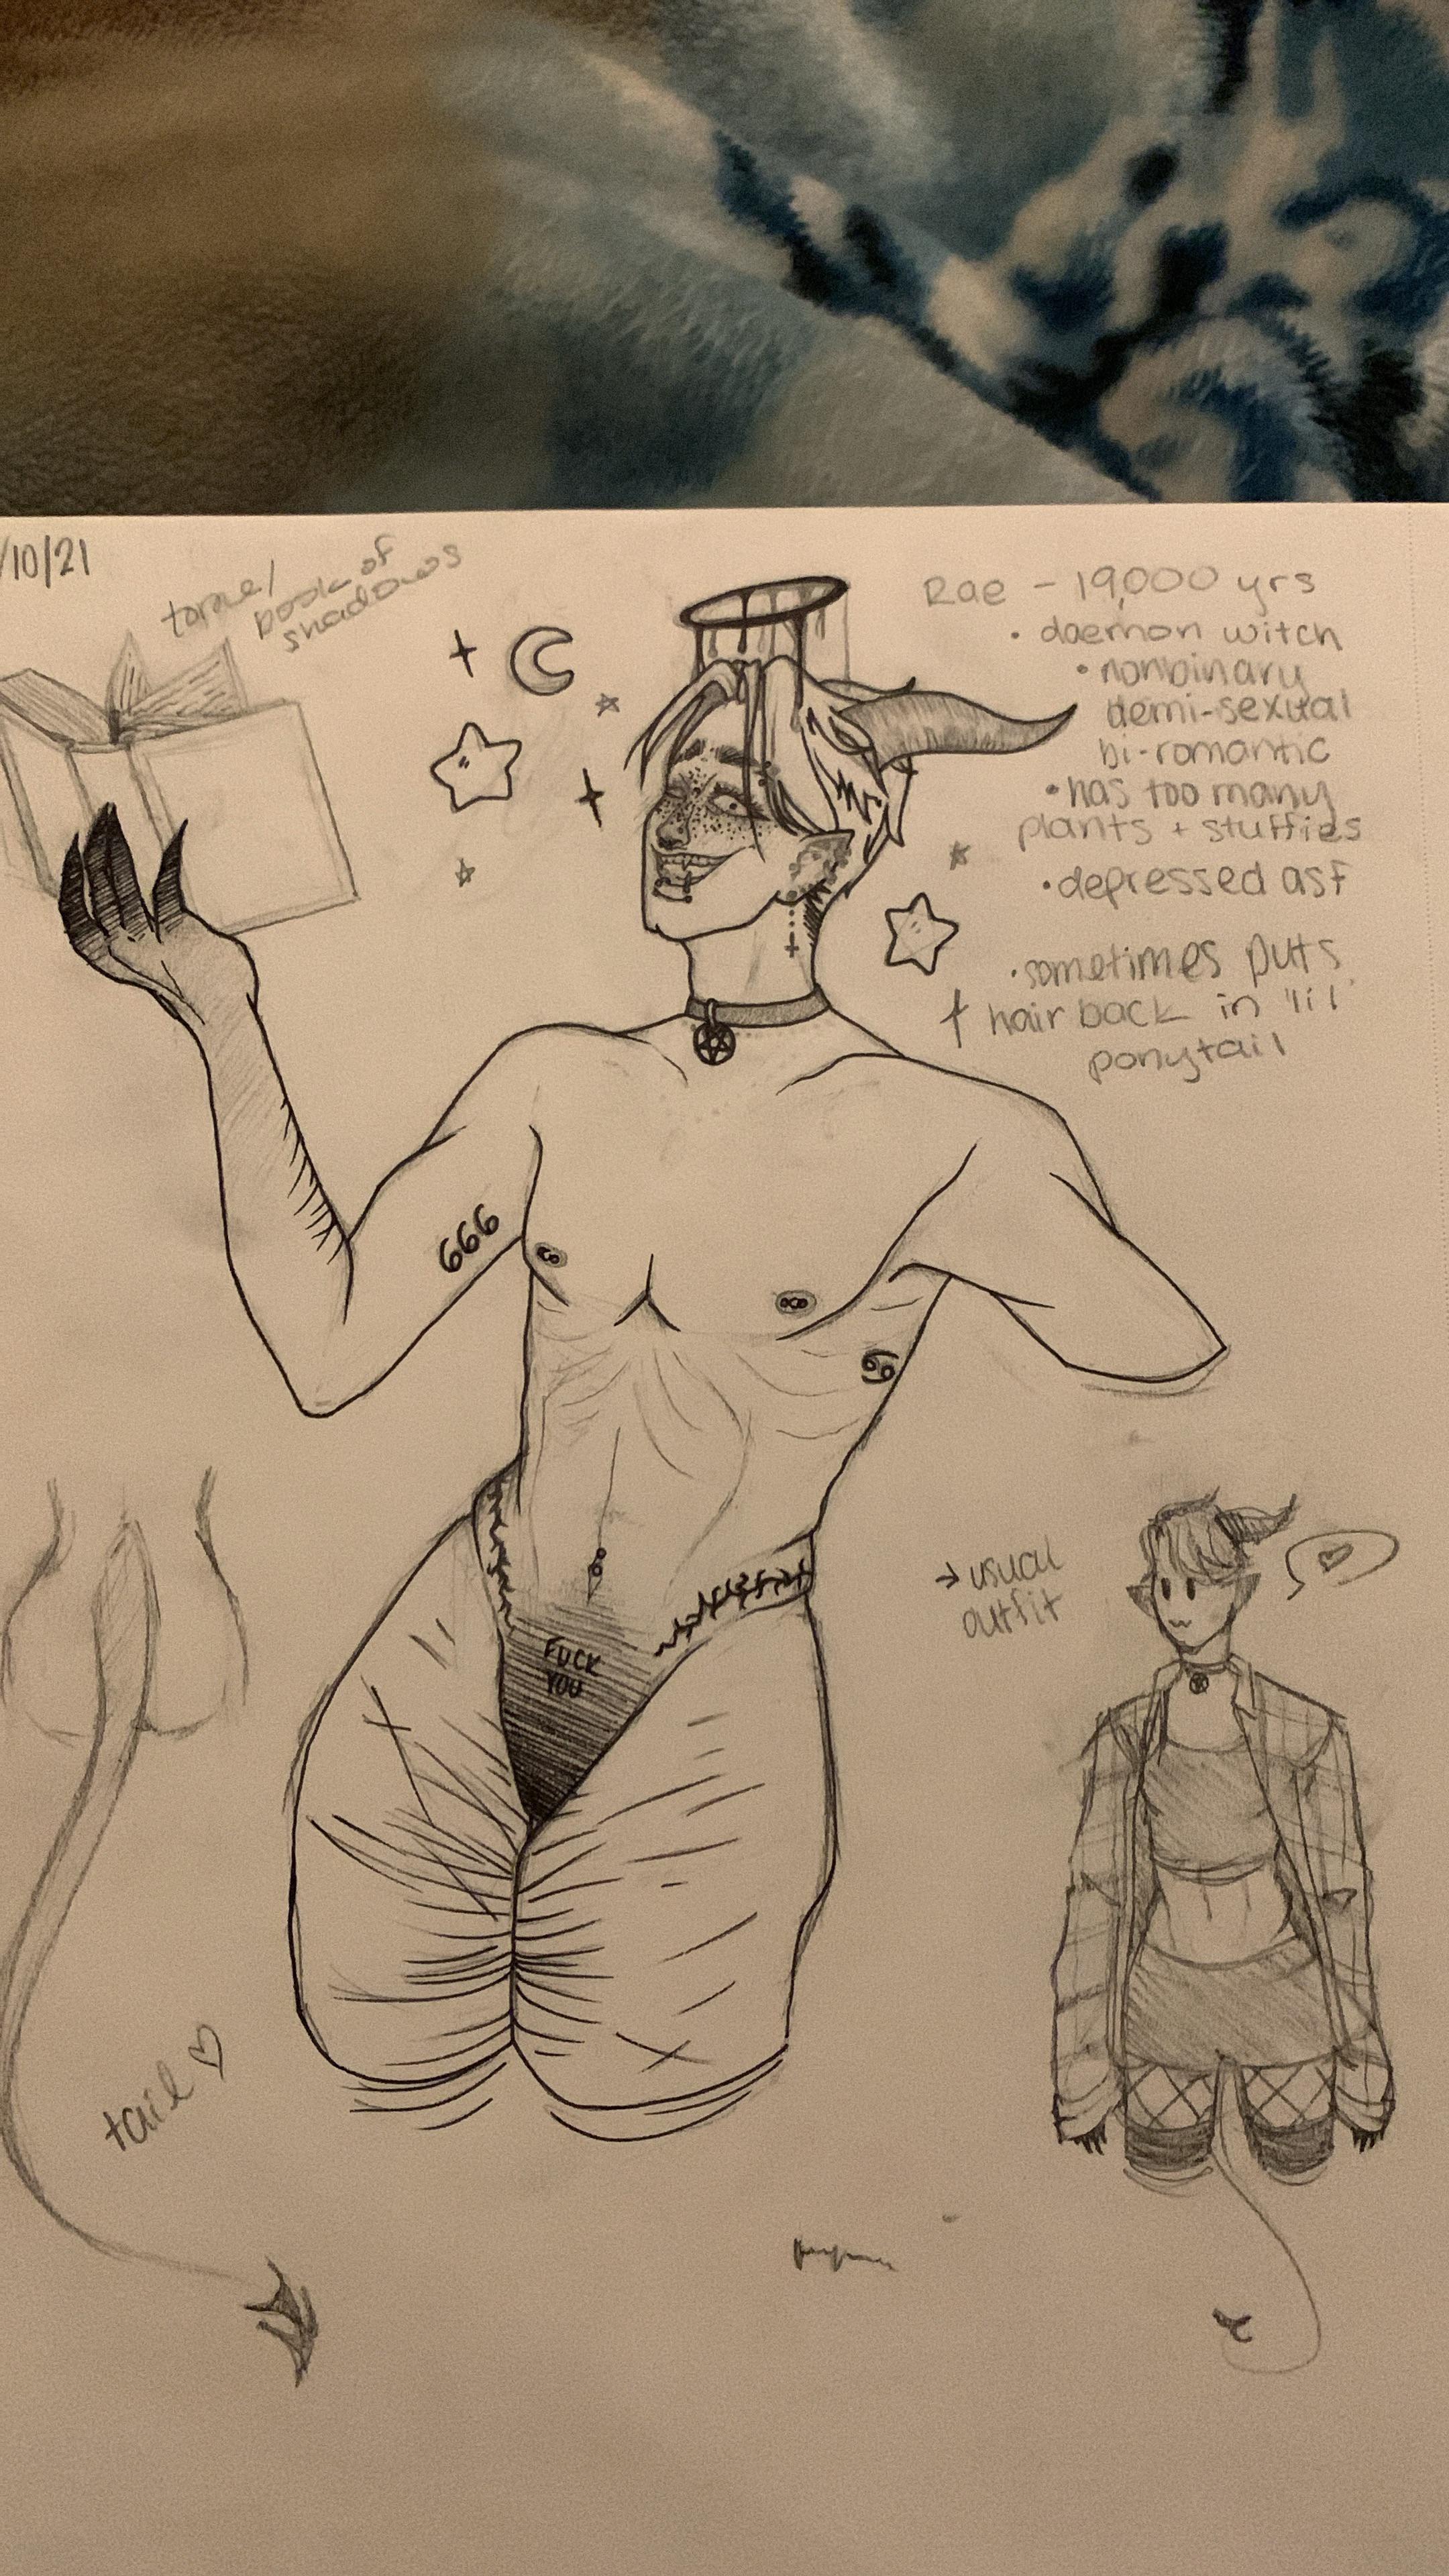 /10/21
tome/
book of
shadows
Rae - 19,000 yrs
• daemon witch
• nonbinary
demi-sexual
bi-romantic
• has too many
plants + stuffies
• depressed asf
• sometimes puts
hair back in 'lil'
ponytail
666
FUCK
YOU
→ usual
outfit
tail ♡